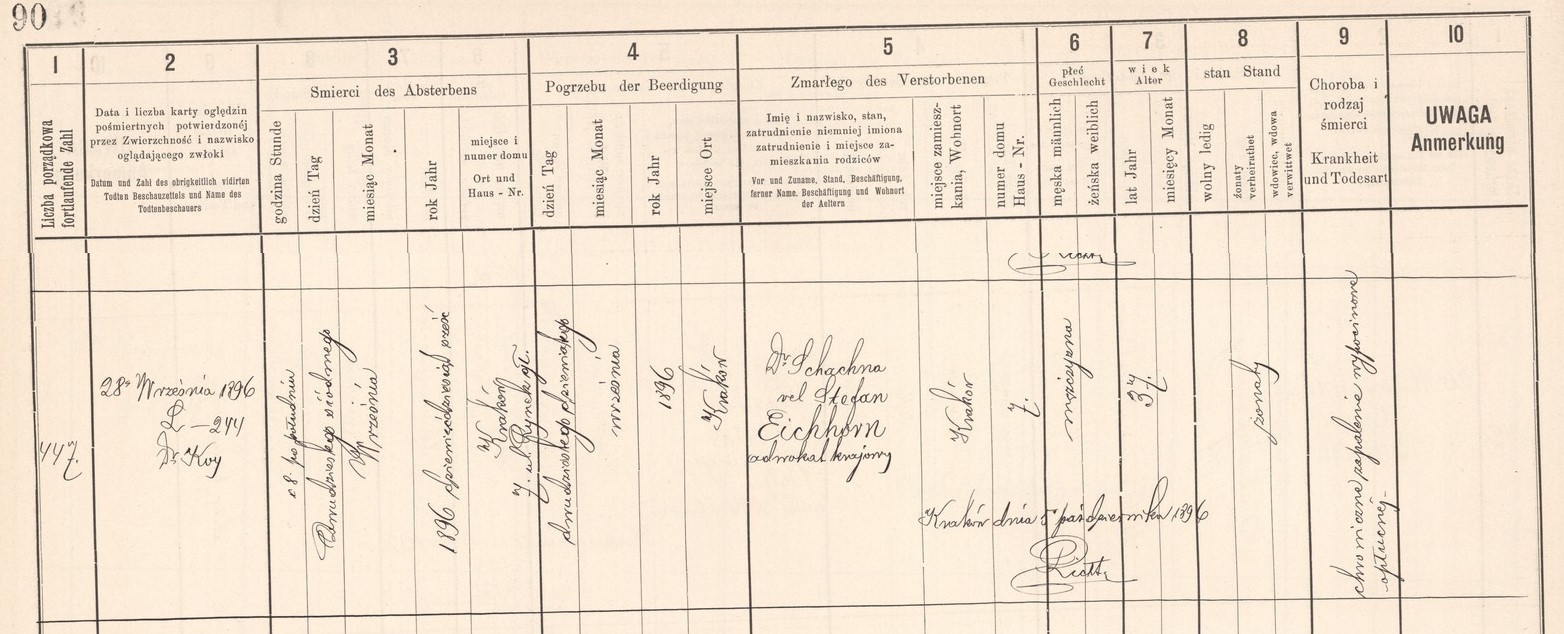 90
1
2
3
4
5
6
7
8
9
10
Liczba porządkowa
fortlaufende Zahl
Data i liczba karty oględzin
pośmiertnych potwierdzonéj
przez Zwierzchność i nazwisko
oglądającego zwłoki
Datum und Zahl des obrigkeitlich vidirten
Todten Beschauzettels und Name des
Todtenbeschauers
Smierci des Absterbens
godzina Stunde
dzień Tag
miesiąc Monat
rok Jahr
miejsce i
numer domu
Ort und
Haus - Nr.
Pogrzebu der Beerdigung
dzień Tag
miesiąc Monat
rok Jahr
miejsce Ort
Zmarłego des Verstorbenen
Imię i nazwisko, stan,
zatrudnienie niemniej imiona
zatrudnienie i miejsce za-
mieszkania rodziców
Vor und Zuname, Stand, Beschäftigung,
ferner Name, Beschäftigung und Wohnort
der Aeltern
miejsce zamiesz-
kania, Wohnort
numer domu
Haus - Nr.
płeć
Geschlecht
męska männlich
żeńska weiblich
wiek
Alter
lat Jahr
miesięcy Monat
stan Stand
wolny ledig
żonaty
verheirathet
wdowiec, wdowa
verwittwet
Choroba i
rodzaj
śmierci
Krankheit
und Todesart
UWAGA
Anmerkung
447.
28go Września 1896
L — 244
Dr Koy
8. po południu
Dwudziestego siódmego
Września
1896 dziewięćdziesiąt sześć
w Krakowie
7. ul. Rynek gł.
dwudziestego dziewiątego
września
1896
w Kraków
Dr Schachna
vel Stefan
Eichhorn
adwokat krajowy
Kraków
7.
mężczyzna
37.
żonaty
chroniczne zapalenie wypocinowe
opłucnéj
Kraków dnia 5 października 1896